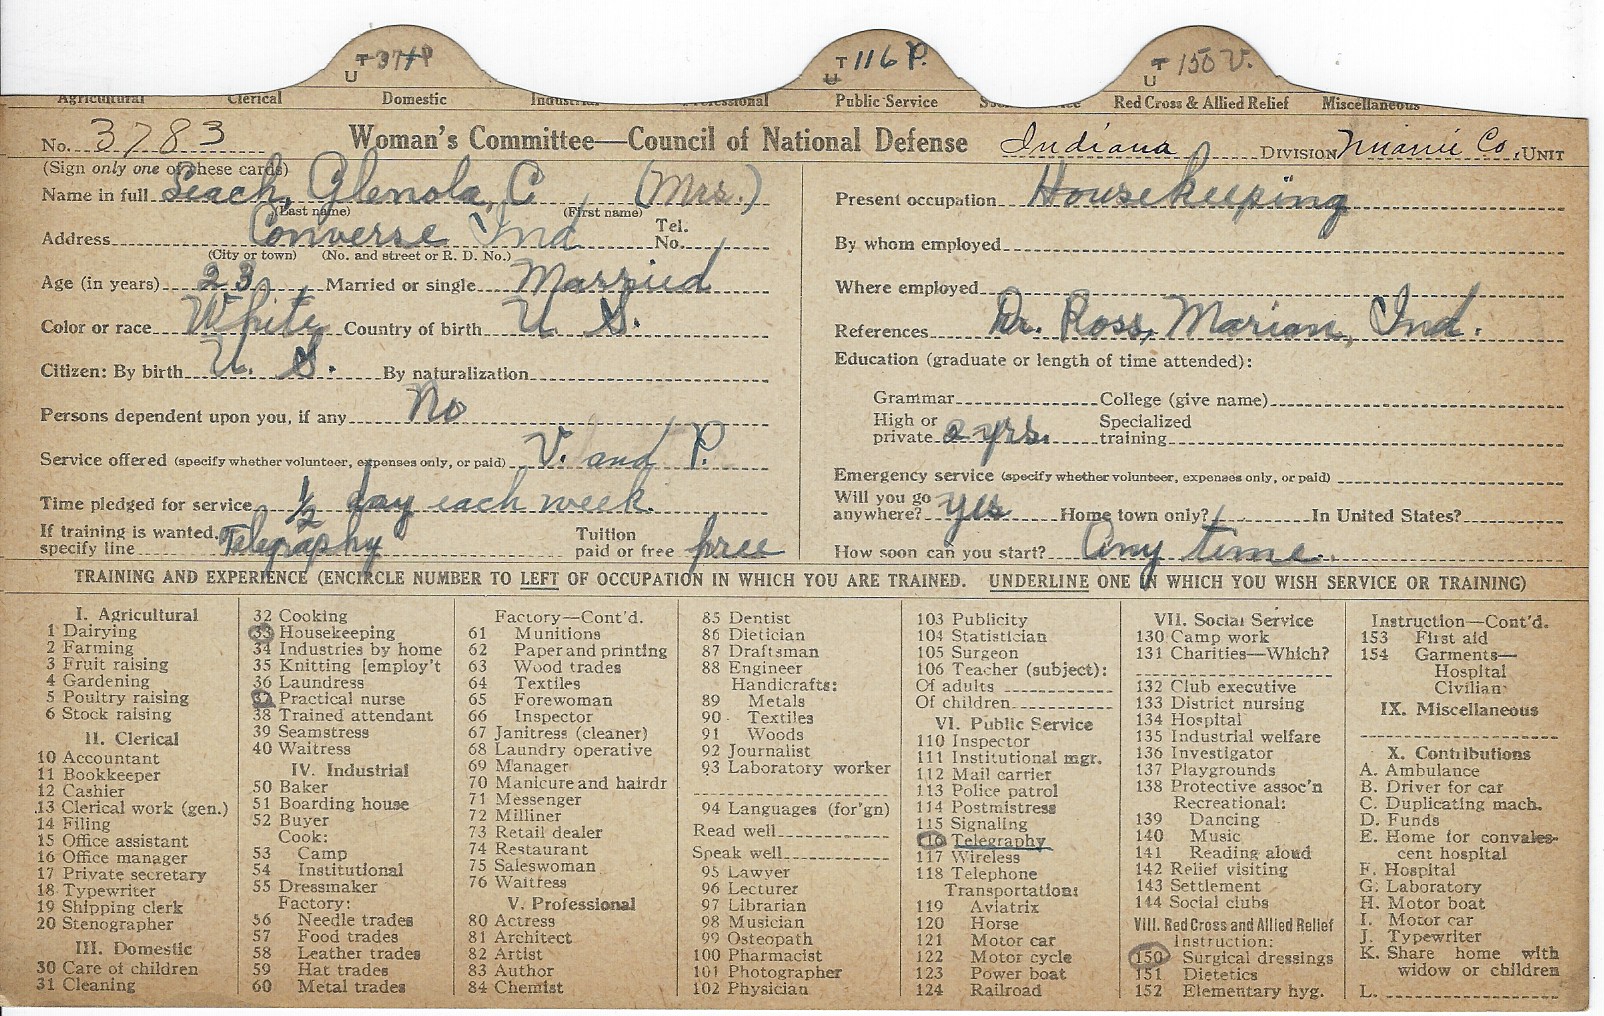 T 37 P
U
T 116 P.
U
T 150 V.
U
Agricultural Clerical Domestic Industrial Professional Public Service Red Cross & Allied Relief Miscellaneous
No. 3783 Woman's Committee—Council of National Defense Indiana DIVISION Miami Co., UNIT
(Sign only one of these cards)
Name in full Seach, Glenola, C (Mrs.)
(Last name) (First name)
Address Converse Ind Tel. No.
(City or town) (No. and street or R. D. No.)
Age (in years) 23 Married or single Married
Color or race White Country of birth U. S.
Citizen: By birth U. S. By naturalization
Persons dependent upon you, if any No
Service offered (specify whether volunteer, expenses only, or paid) V. and P.
Time pledged for service 1/2 day each week.
If training is wanted, specify line Telegraphy Tuition paid or free free
Present occupation Housekeeping
By whom employed
Where employed
References Dr. Ross, Marian, Ind.
Education (graduate or length of time attended):
Grammar College (give name)
High or private 2 yrs. Specialized training
Emergency service (specify whether volunteer, expenses only, or paid)
Will you go anywhere? yes Home town only? In United States?
How soon can you start? Any time.
TRAINING AND EXPERIENCE (ENCIRCLE NUMBER TO LEFT OF OCCUPATION IN WHICH YOU ARE TRAINED. UNDERLINE ONE IN WHICH YOU WISH SERVICE OR TRAINING)
I. Agricultural
1 Dairying
2 Farming
3 Fruit raising
4 Gardening
5 Poultry raising
6 Stock raising
II. Clerical
10 Accountant
11 Bookkeeper
12 Cashier
13 Clerical work (gen.)
14 Filing
15 Office assistant
16 Office manager
17 Private secretary
18 Typewriter
19 Shipping clerk
20 Stenographer
III. Domestic
30 Care of children
31 Cleaning
32 Cooking
33 Housekeeping
34 Industries by home
35 Knitting [employ't
36 Laundress
37 Practical nurse
38 Trained attendant
39 Seamstress
40 Waitress
IV. Industrial
50 Baker
51 Boarding house
52 Buyer
Cook:
53 Camp
54 Institutional
55 Dressmaker
Factory:
56 Needle trades
57 Food trades
58 Leather trades
59 Hat trades
60 Metal trades
Factory—Cont'd.
61 Munitions
62 Paper and printing
63 Wood trades
64 Textiles
65 Forewoman
66 Inspector
67 Janitress (cleaner)
68 Laundry operative
69 Manager
70 Manicure and hairdr
71 Messenger
72 Milliner
73 Retail dealer
74 Restaurant
75 Saleswoman
76 Waitress
V. Professional
80 Actress
81 Architect
82 Artist
83 Author
84 Chemist
85 Dentist
86 Dietician
87 Draftsman
88 Engineer
Handicrafts:
89 Metals
90 Textiles
91 Woods
92 Journalist
93 Laboratory worker
94 Languages (for'gn)
Read well
Speak well
95 Lawyer
96 Lecturer
97 Librarian
98 Musician
99 Osteopath
100 Pharmacist
101 Photographer
102 Physician
103 Publicity
104 Statistician
105 Surgeon
106 Teacher (subject):
Of adults
Of children
VI. Public Service
110 Inspector
111 Institutional mgr.
112 Mail carrier
113 Police patrol
114 Postmistress
115 Signaling
116 Telegraphy
117 Wireless
118 Telephone
Transportation:
119 Aviatrix
120 Horse
121 Motor car
122 Motor cycle
123 Power boat
124 Railroad
VII. Social Service
130 Camp work
131 Charities—Which?
132 Club executive
133 District nursing
134 Hospital
135 Industrial welfare
136 Investigator
137 Playgrounds
138 Protective assoc'n
Recreational:
139 Dancing
140 Music
141 Reading aloud
142 Relief visiting
143 Settlement
144 Social clubs
VIII. Red Cross and Allied Relief
Instruction:
150 Surgical dressings
151 Dietetics
152 Elementary hyg.
Instruction—Cont'd.
153 First aid
154 Garments—
Hospital
Civilian
IX. Miscellaneous
X. Contributions
A. Ambulance
B. Driver for car
C. Duplicating mach.
D. Funds
E. Home for convales-
cent hospital
F. Hospital
G. Laboratory
H. Motor boat
I. Motor car
J. Typewriter
K. Share home with
widow or children
L.